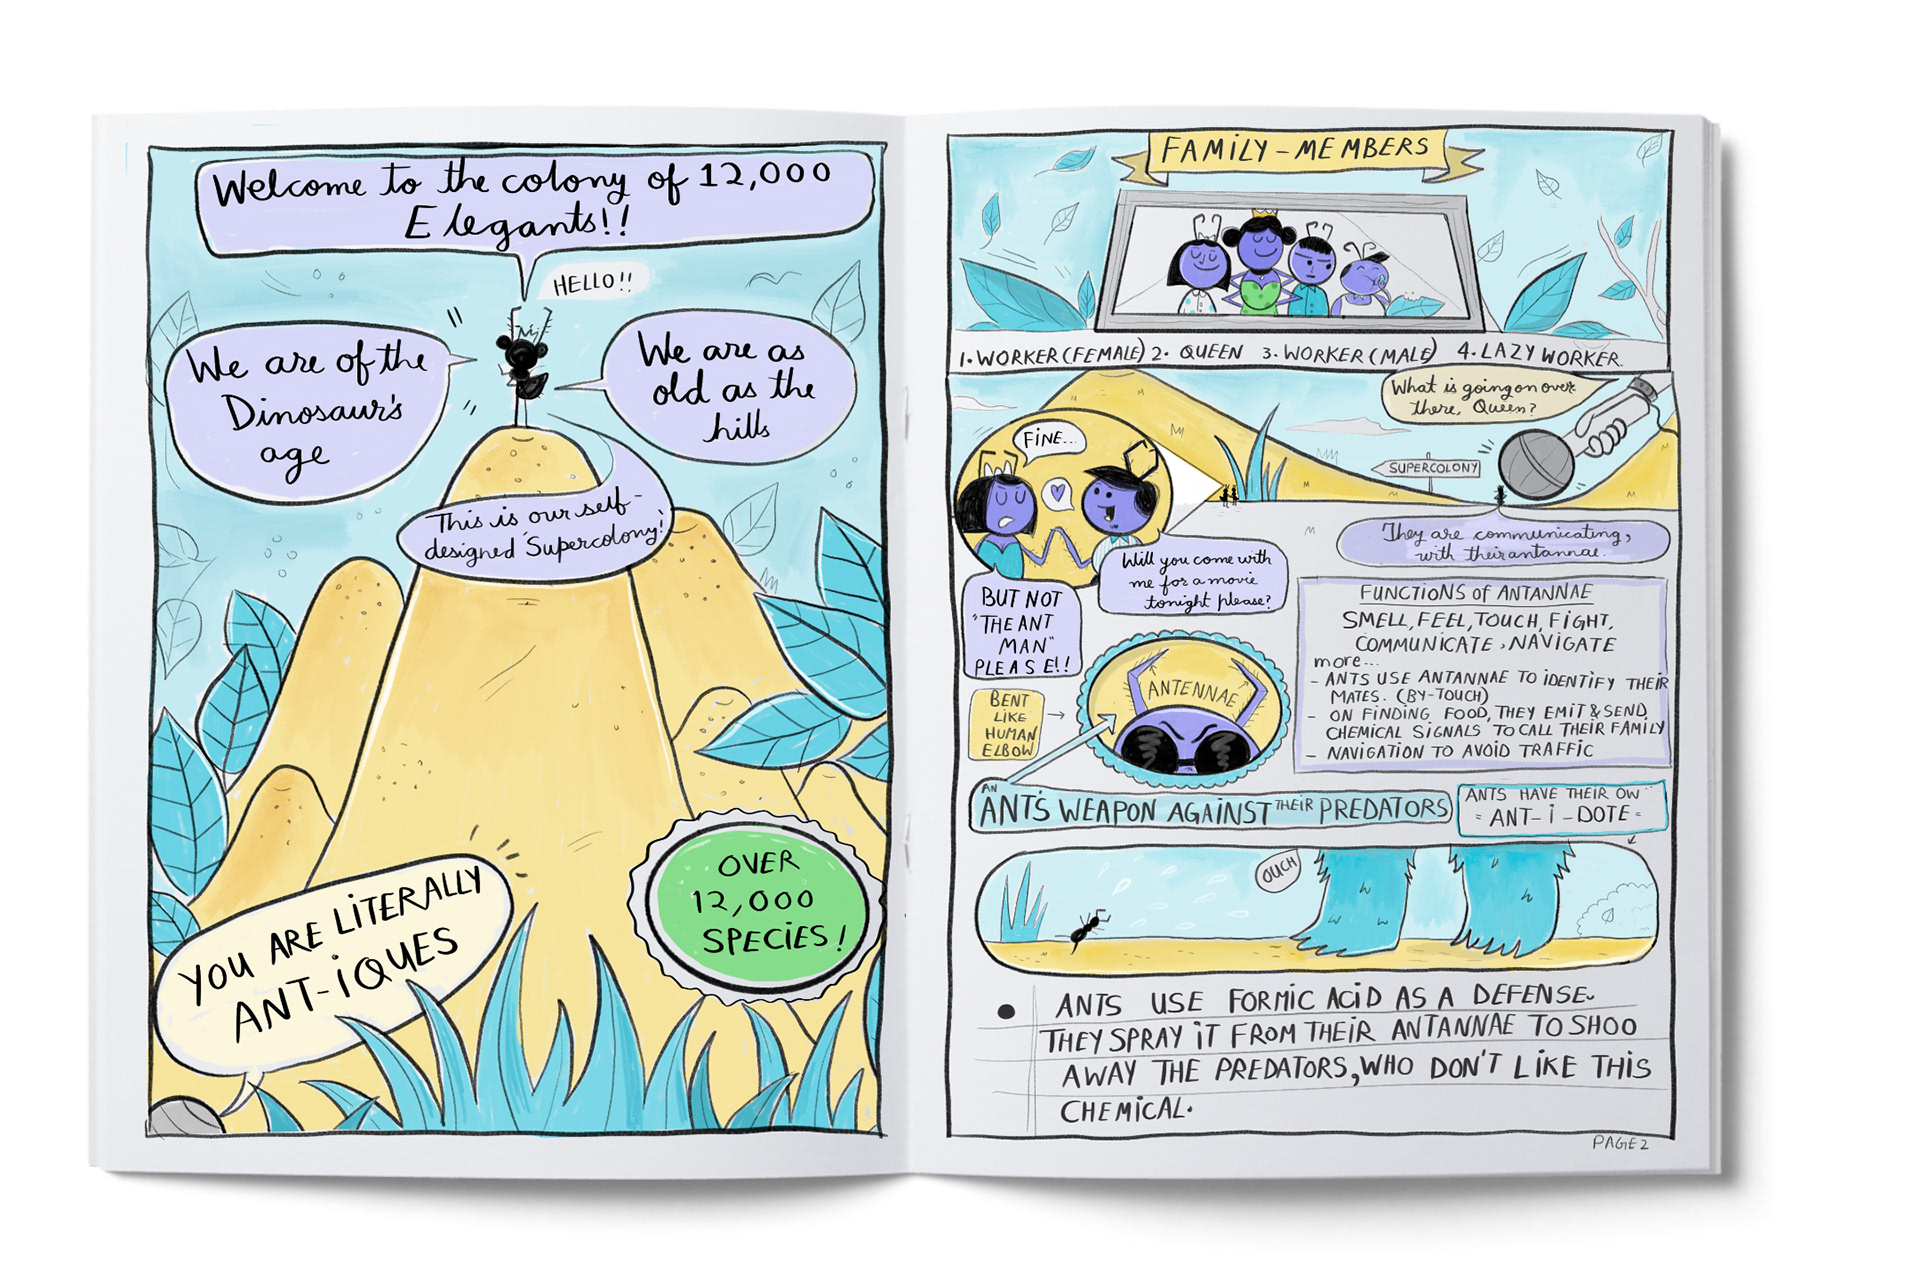 Welcome to the colony of 12,000
Elegants!!
HELLO!!
We are of the
Dinosaur's
age
We are as
old as the
hills
This is our self-
designed 'Supercolony!'
YOU ARE LITERALLY
ANT-iQUES
OVER
12,000
SPECIES!
FAMILY-MEMBERS
1. WORKER (FEMALE) 2. QUEEN 3. WORKER (MALE) 4. LAZY WORKER.
What is going on over
there, Queen?
SUPERCOLONY
They are communicating,
with their antannae.
FINE...
Will you come with
me for a movie
tonight please?
BUT NOT
"THE ANT
MAN"
PLEASE!!
BENT
LIKE
HUMAN
ELBOW
ANTENNAE
FUNCTIONS of ANTANNAE
SMELL, FEEL, TOUCH, FIGHT,
COMMUNICATE, NAVIGATE
more...
- ANTS USE ANTANNAE TO IDENTIFY THEIR
MATES. (BY-TOUCH)
- ON FINDING FOOD, THEY EMIT & SEND
CHEMICAL SIGNALS TO CALL THEIR FAMILY
- NAVIGATION TO AVOID TRAFFIC
AN
ANT'S WEAPON AGAINST THEIR PREDATORS
ANTS HAVE THEIR OW
- ANT-i-DOTE -
OUCH
ANTS USE FORMIC ACID AS A DEFENSE.
THEY SPRAY IT FROM THEIR ANTANNAE TO SHOO
AWAY THE PREDATORS, WHO DON'T LIKE THIS
CHEMICAL.
PAGE 2